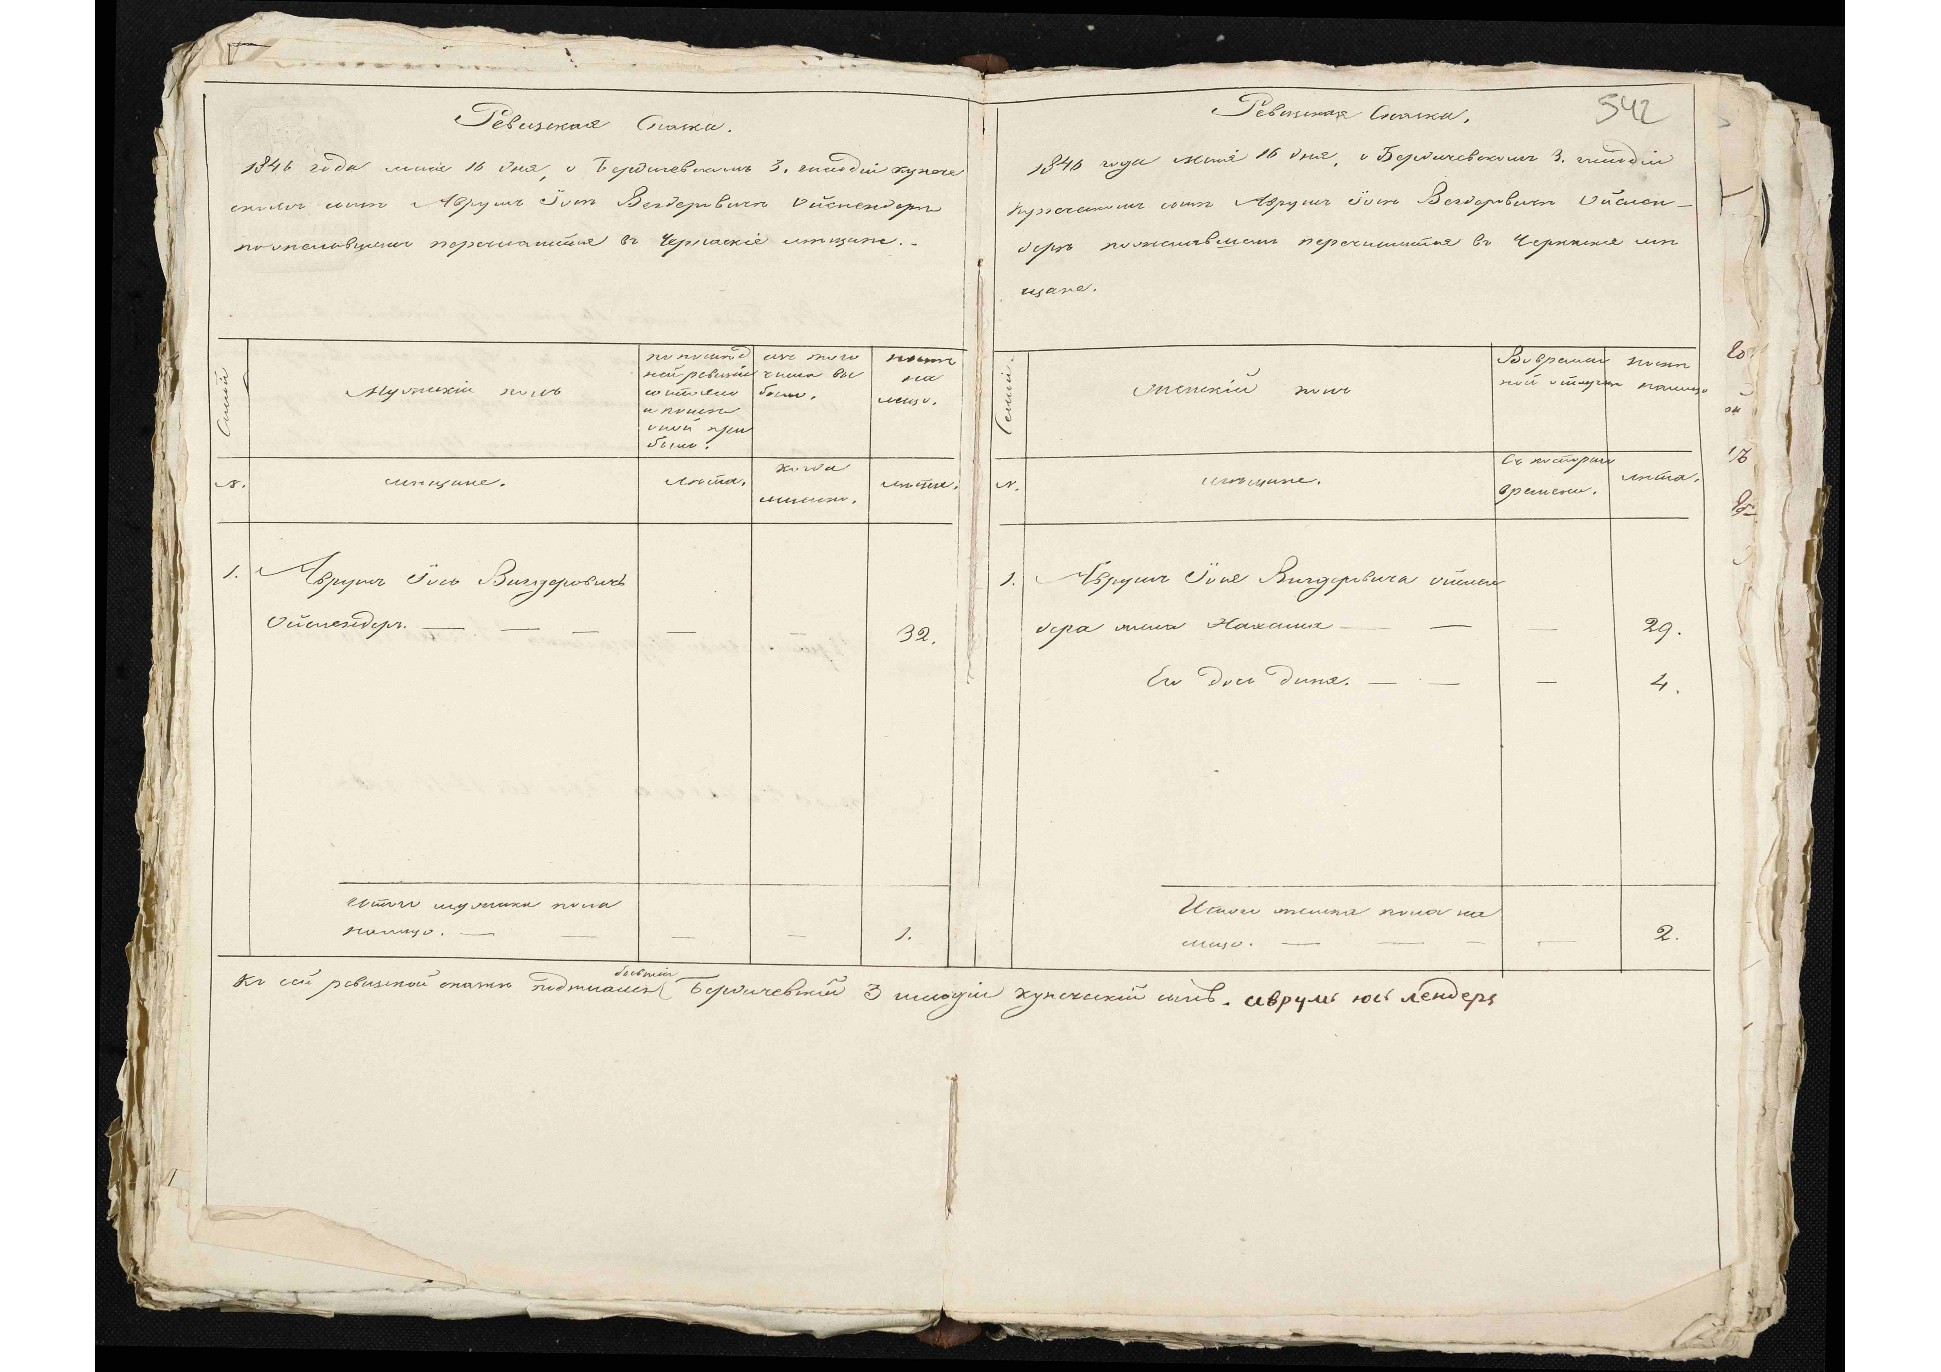 Ревизская Сказка.
1846 года маия 16 дня, о Бердичевскомъ 3. гильдіи купече
скомъ сынѣ Аврумъ Іосѣ Вигдоровичѣ Ойслендерѣ
пожелавшемъ перечислится въ Черкаскіе мѣщане.
Семьи
Мужескій полъ
по послѣд
ней ревизіи
состояло
и послѣ
оной при
было.
изъ того
числа вы
было.
нынѣ
на
лицо.
№.
мѣщане.
лѣта.
когда
именно.
лѣта.
1. Аврумъ Іось Вигдоровичъ
Ойслендеръ. — — — — — 32.
Итого мужска пола
налицо. — — — — 1.
Ревизская Сказка.
542
1846 года маія 16 дня, о Бердичевскомъ 3. гильдіи
купеческомъ сынѣ Аврумъ Іосѣ Вигдоровичѣ Ойслен-
дерѣ пожелавшемъ перечислится въ Черкаские мѣ
щане.
Семьи
Женскій полъ
Во времен
ной отлучки
нынѣ
налицо
№.
мѣщане.
Съ котораго
времени.
лѣта.
1. Аврумъ Іося Вигдоровича Ойслен
дера жена — — — 29.
Его дочь Диня. — — — 4.
Итого женска пола на
лицо. — — — — 2.
Къ сей ревизкой сказкѣ подписался бывшій Бердичевскій 3 гильдіи купеческій сынъ. аврумъ юсь лендеръ